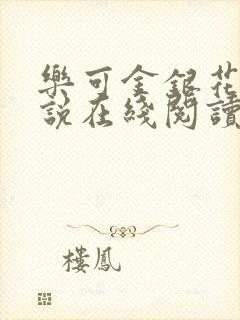 樂可金銀花
說在綫閱讀
樓鳳